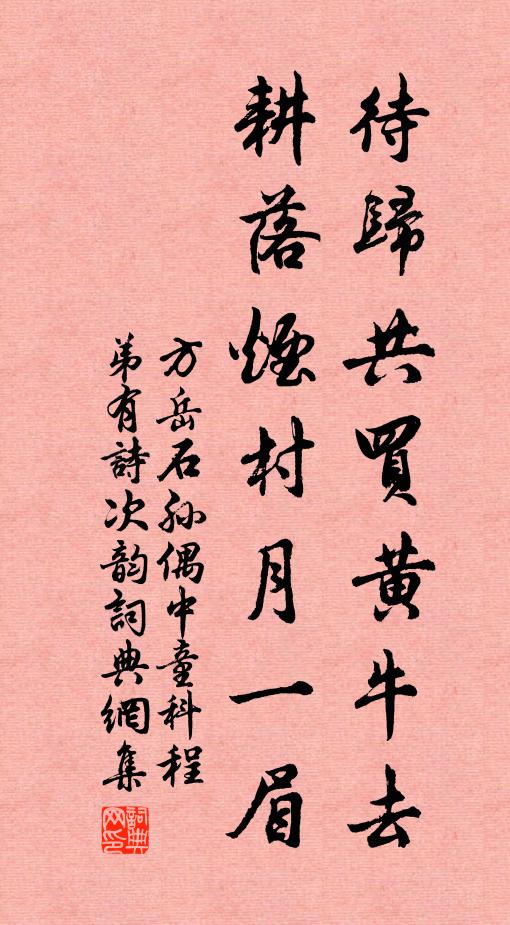 待歸共買黃牛去
耕落煙村月一眉
方岳石孙偶中童科程
弟有詩次韵詞典網集
詞典网印